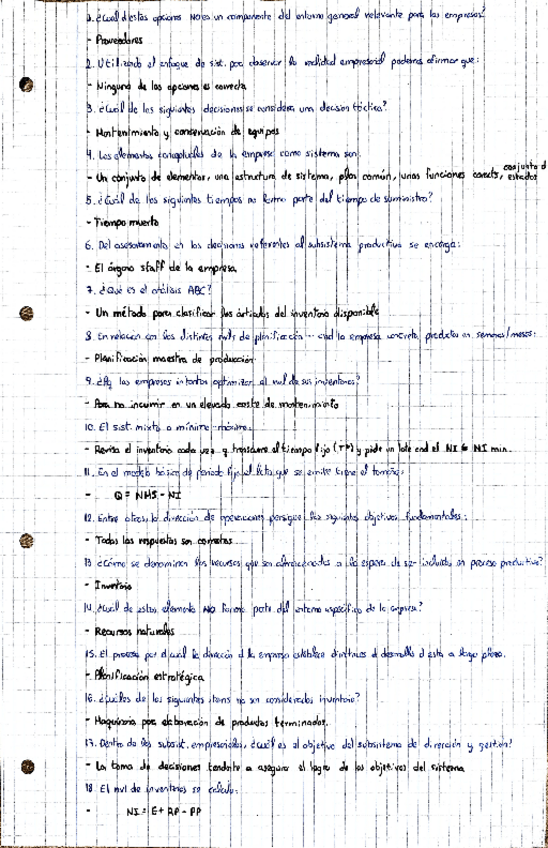 1. ¿Cuál d estas opciones NO es un componente del entorno general relevante para las empresas?
- Proveedores
2. Utilizando el enfoque de sist. para observar la realidad empresarial podemos afirmar que:
- Ninguna de las opciones es correcta
3. ¿Cuál de las siguientes decisiones se considera una decisión táctica?
- Mantenimiento y conservación de equipos
4. Los elementos conceptuales de la empresa como sistema son:
- Un conjunto de elementos, una estructura de sistema, plan común, unas funciones caracts, conjunto d estados
5. ¿Cuál de los siguientes tiempos no forma parte del tiempo de suministro?
- Tiempo muerto
6. Del asesoramiento en las decisiones referentes al subsistema productivo se encarga:
- El órgano staff de la empresa
7. ¿Qué es el análisis ABC?
- Un método para clasificar los artículos del inventario disponible
8. En relación con los distintos nvls de planificación cnd la empresa concreta productos en semanas/meses:
- Planificación maestra de producción
9. ¿Pq las empresas intentan optimizar el nvl de sus inventarios?
- Para no incurrir en un elevado coste de mantenimiento
10. El sist. mixto o mínimo-máximo.
- Revisa el inventario cada vez q transcurre el tiempo fijo (T*) y pide un lote cnd el NI NI min.
11. En el modelo básico de periodo fijo el lote que se emite tiene el tamaño:
- Q = NMS - NI
12. Entre otros, la dirección de operaciones persigue los siguientes objetivos fundamentales:
- Todas las respuestas son correctas
13 ¿Cómo se denominan los recursos que son almacenados a la espera de incluidos en proceso productivo?
- Inventario
14. ¿Cuál de estos elementos NO forma parte del entorno específico de la empresa?
- Recursos naturales
15. El proceso por el cual la dirección d la empresa establece directrices d desarrollo d esta a largo plazo.
- Planificación estratégica
16. ¿Cuáles de los siguientes items no son considerados inventario?
- Maquinaria para elaboración de productos terminados.
17. Dentro de los subsist. empresariales, ¿cuál es el objetivo del subsistema de dirección y gestión?
- La toma de decisiones tendente a asegurar el logro de los objetivos del sistema
18 El nvl de inventarios se calcula:
- NI = E + RP - PP